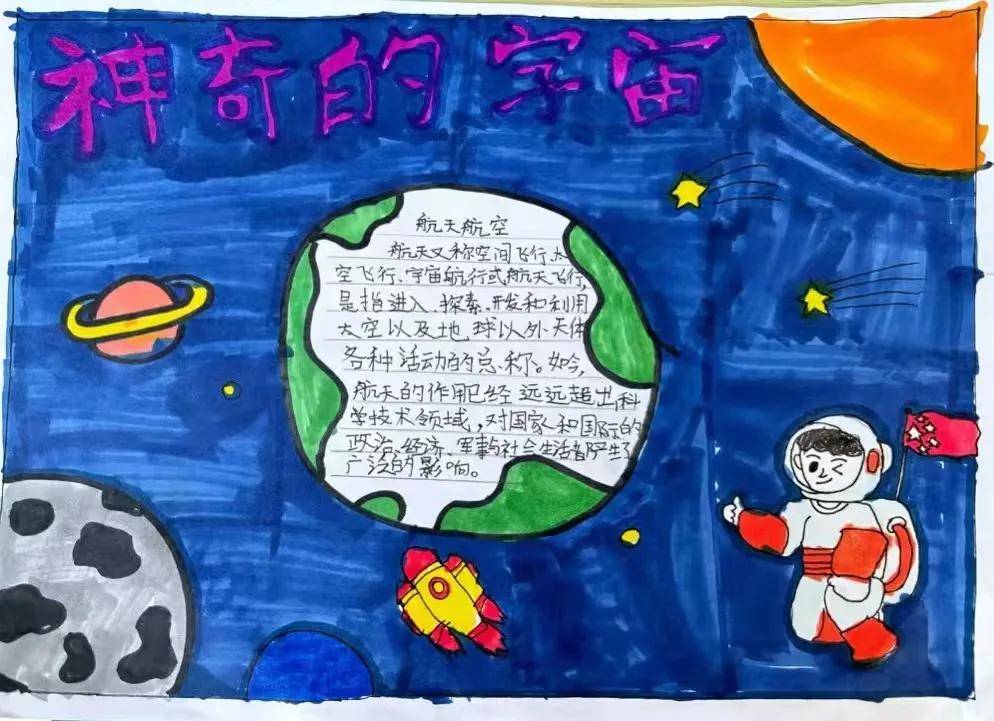 神奇的宇宙
航天航空
航天又称空间飞行、太
空飞行、宇宙航行或航天飞行,
是指进入、探索、开发和利用
太空以及地球以外天体
各种活动的总称。如今,
航天的作用已经远远超出科
学技术领域,对国家和国际的
政治、经济、军事的社会生活都产生了
广泛的影响。